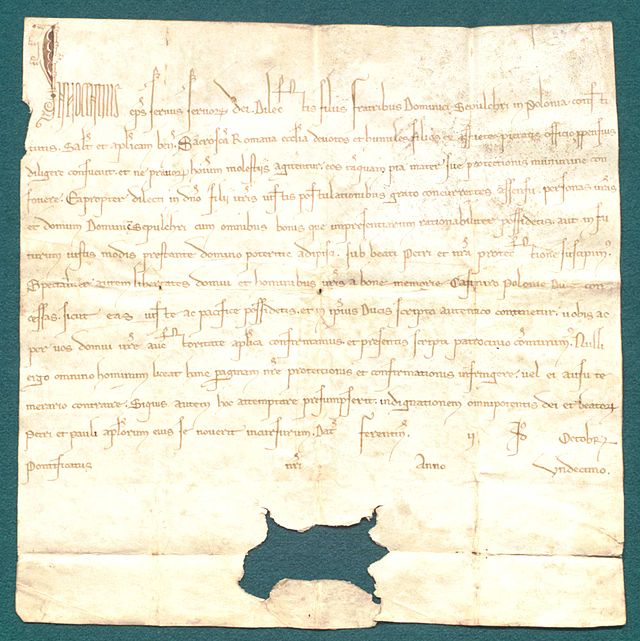 Innocentius
eps servus servorum dei. Dilectis filiis fratribus Dominici Sepulchri in Polonia consti
tutis. Salt et aplicam ben. Sacrosca Romana ecclia devotos et humiles filios ex assuete pietatis officio propensius
diligere consuevit. et ne pravorum hominum molestiis agitentur. eos tamquam pia mater sue protectionis munimine con
fovere. Eapropter dilecti in dno filii vris iustis postulationibus grato concurrentes assensu. personas vras
et domum Dominici Sepulchri cum omnibus bonis que impresentiarum rationabiliter possidetis. aut in fu
turum iustis modis prestante domino poteritis adipisci. sub beati Petri et nra protectione suscipimus.
Specialiter autem libertates domui et hominibus vris a bone memorie Casimiro Polonie Duce con
cessas. sicut eas iuste ac pacifice possidetis. et in ipsius Ducis scripto autentico continetur. vobis ac
per vos domui vre auctoritate aplica confirmamus. et presentis scripti patrocinio communimus. Nulli
ergo omnino hominum liceat hanc paginam nre protectionis et confirmationis infringere. vel ei ausu te
merario contraire. Siquis autem hoc attemptare presumpserit. indignationem omnipotentis dei et beatorum
Petri et Pauli aplorum eius se noverit incursurum. Dat Ferentin. ii Id Octobr
Pontificatus nri Anno Undecimo.